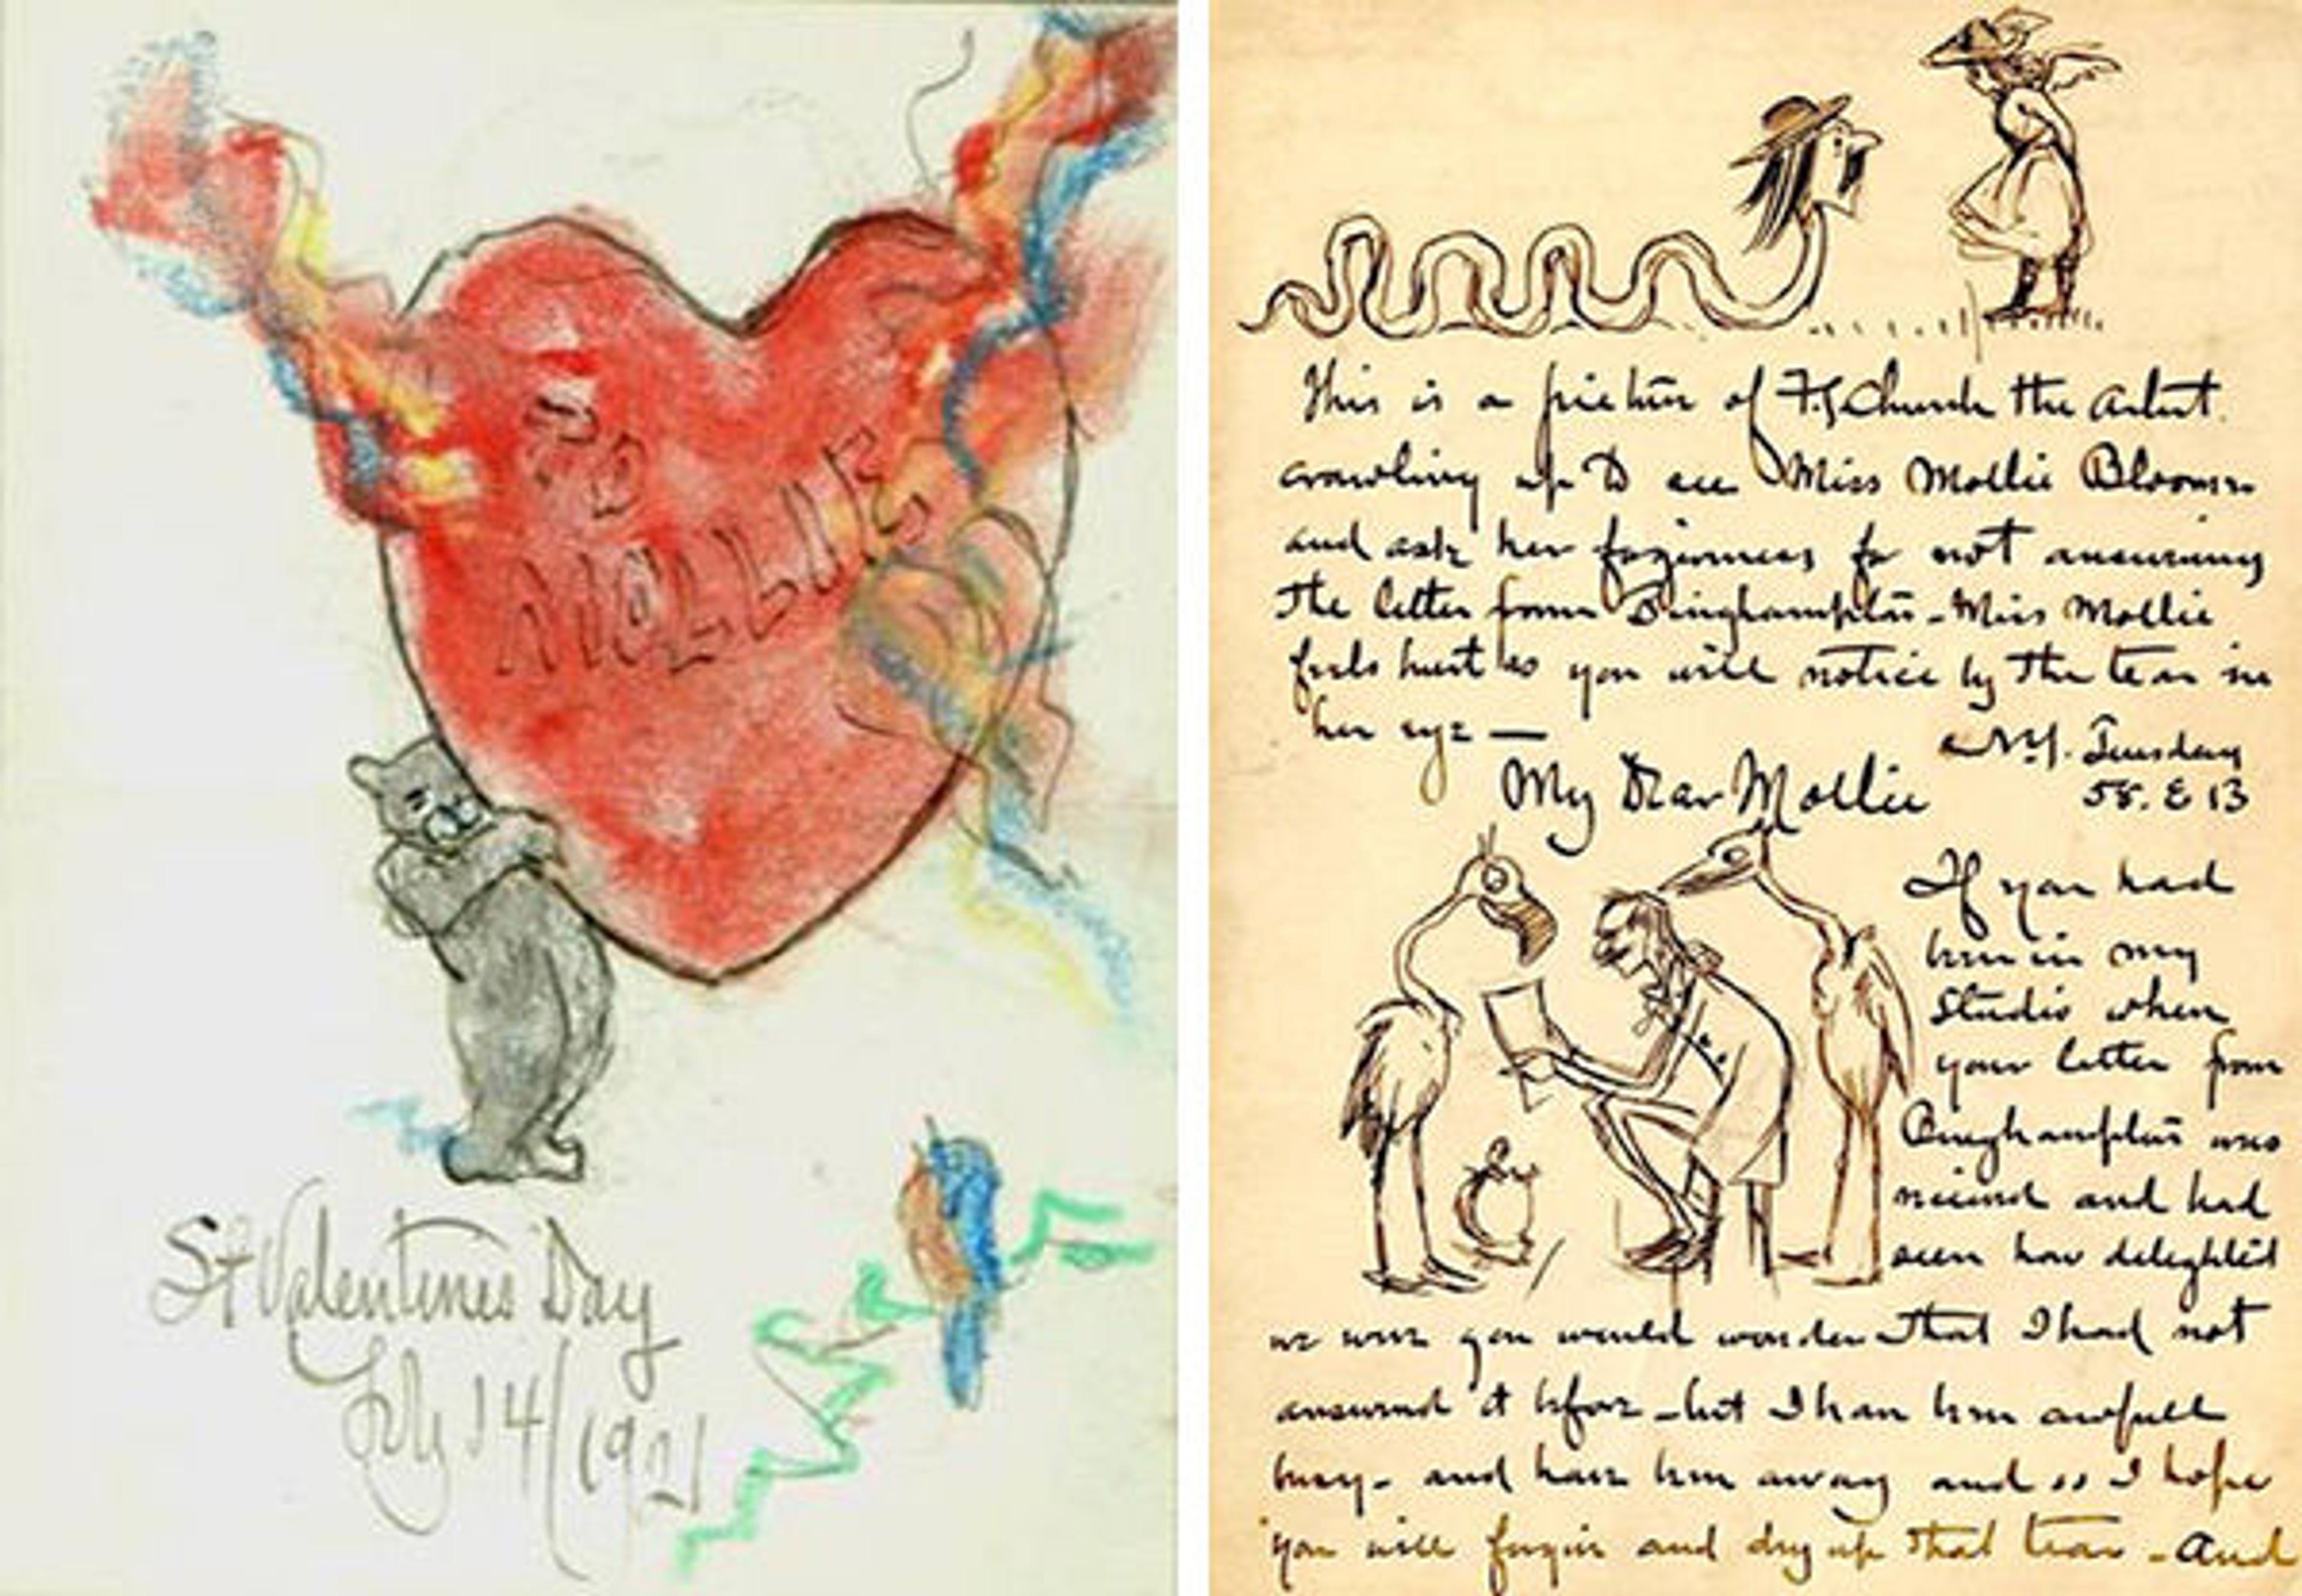 TO
MOLLIE
St Valentines Day
Feby 14/1921
This is a picture of F.S. Church the Artist.
crawling up to see Miss Mollie Bloomer
and ask her forgiveness for not answering
the letter from Binghamplton - Miss Mollie
feels hurt as you will notice by the tear in
her eye —
N.Y. Tuesday
58. E 13
My Dear Mollie
If you had
been in my
studio when
your letter from
Binghamplton was
received and had
seen how delighted
we were you would wonder that I had not
answered it before - but I have been awfully
busy - and have been away and so I hope
you will forgive and dry up that tear - And